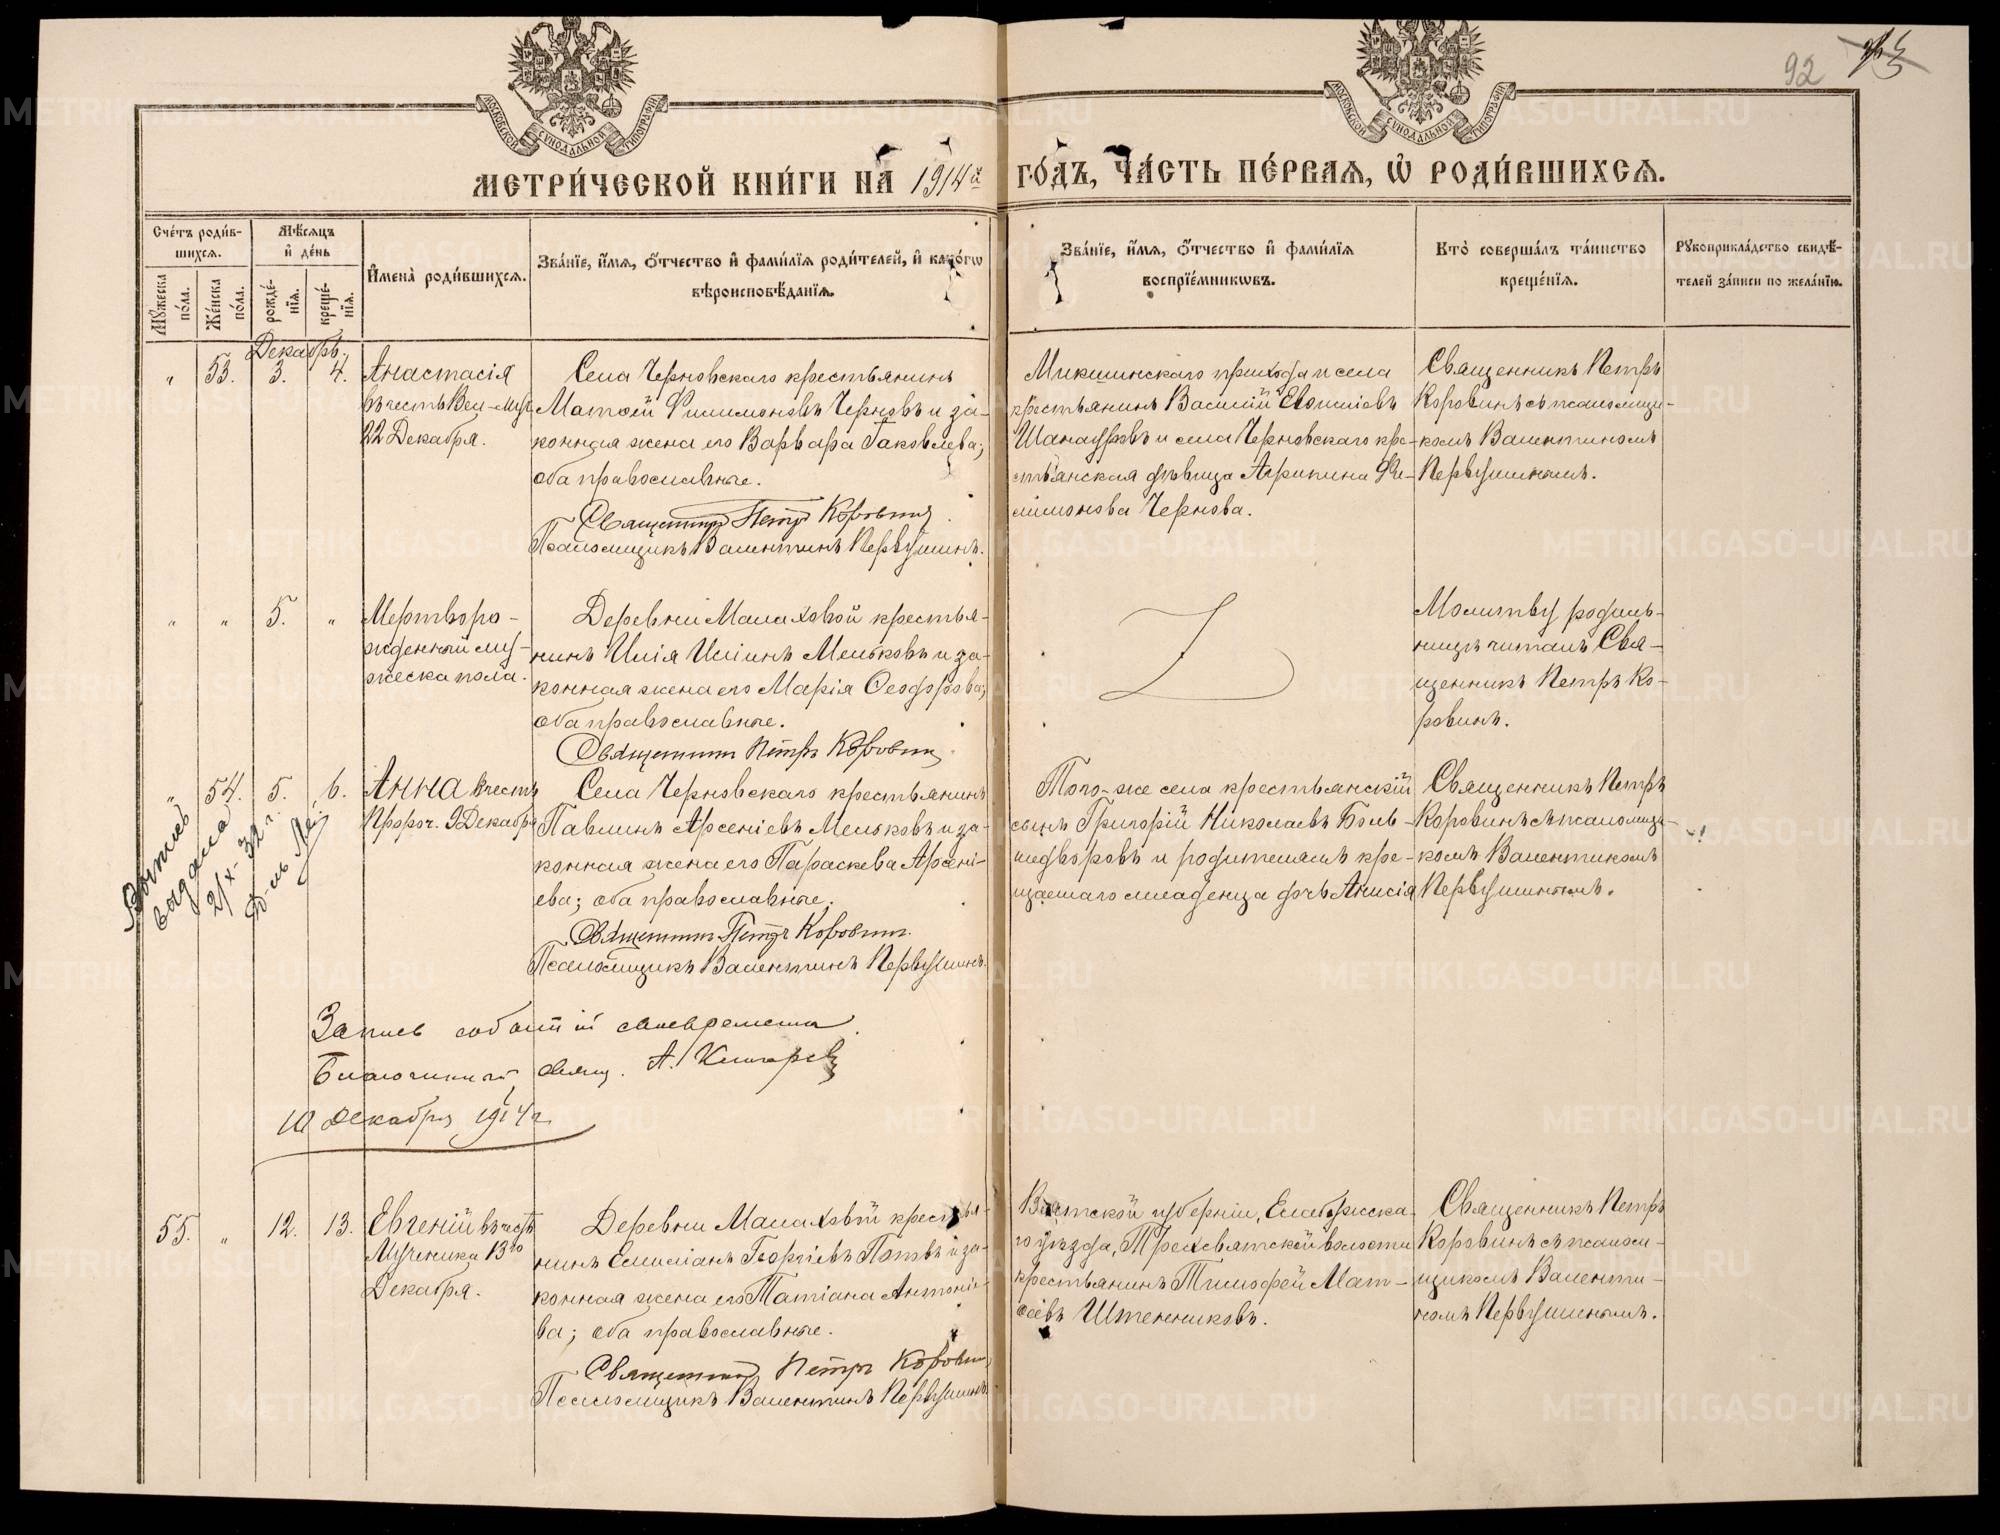 92
МОСКОВСКОЙ СѴНОДАЛЬНОЙ ТИПОГРАФІИ
МОСКОВСКОЙ СѴНОДАЛЬНОЙ ТИПОГРАФІИ
МЕТРИ́ЧЕСКОЙ КНИ́ГИ НА 1914й ГО́ДЪ, ЧА́СТЬ ПЕ́РВАЯ, Ѡ҆ РОДИ́ВШИХСЯ.
Сче́тъ роди́в-
шихся.
Мѣ́сяцъ
и҆ де́нь
Мꙋ́жеска по́ла.
Же́нска по́ла.
рожде́-
нїя.
креще́-
нїя.
И҆мена̀ роди́вшихся.
Зва́нїе, и҆́мя, ѻ҆́тчество и҆ фами́лїя роди́телей, и҆ како́гѡ
вѣроисповѣ́данїя.
Зва́нїе, и҆́мя, ѻ҆́тчество и҆ фами́лїя
воспрїе́мникѡвъ.
Кто̀ соверша́лъ та́инство
креще́нїя.
Рꙋкоприкла́дство свидѣ́-
телей за́писи по жела́нїю.
Декабрь.
" 53. 3. 4.
Анастасія
въ честь Вел-муч.
22 Декабря.
Села Черновскаго крестьянинъ
Матѳей Филимоновъ Черновъ и за-
конная жена его Варвара Іаковлева;
оба православные.
Священникъ Петръ Коровинъ
Псаломщикъ Валентинъ Первушинъ.
Микшинскаго прихода и села
крестьянинъ Василій
и села Черновскаго кре-
стьянская дѣвица Агрипина Фи-
лимонова Чернова.
Священникъ Петръ
Коровинъ съ псаломщи-
комъ Валентиномъ
Первушинымъ.
" " 5. "
Мертворо-
жденный му-
жеска пола.
Деревни Малаховой крестья-
нинъ Илія Иліинъ Мельковъ и за-
конная жена его Марія Ѳеодорова;
оба православные.
Священникъ Петръ Коровин
Молитву родиль-
ницѣ читалъ Свя-
щенникъ Петръ Ко-
ровинъ.
" 54. 5. 6.
Выпись
выдана
2/X-32 г.
Анна въ честь
Пророч. 9 Декабря
Села Черновскаго крестьянинъ
Павлинъ Арсеніевъ Мельковъ и за-
конная жена его Параскева Арсені-
ева; оба православные.
Священникъ Петръ Коровинъ.
Псаломщикъ Валентинъ Первушинъ.
Того-же села крестьянскій
сынъ Григорій Николаевъ Боль-
шедворовъ и родителямъ кре-
щаемаго младенца дочь Анисія
Священникъ Петръ
Коровинъ съ псаломщи-
комъ Валентиномъ
Первушинымъ.
Запись событій своевременна
Благочинный, свящ. А.
10 декабря 1914 г.
55. " 12. 13.
Евгеній въ честь
Мученика 13го
Декабря.
Деревни Малаховой крестья-
нинъ Емиліанъ Георгіевъ Поповъ и за-
конная жена его Татіана Антоніе-
ва; оба православные.
Священникъ Петръ Коровин
Псаломщикъ Валентинъ Первушинъ.
Вятской губерніи, Елабужска-
го уѣзда, Трехсвятской волости
крестьянинъ Тимофей Мат-
ѳеевъ Штенниковъ.
Священникъ Петръ
Коровинъ съ псалом-
щикомъ Валенти-
номъ Первушинымъ.
METRIKI.GASO-URAL.RU